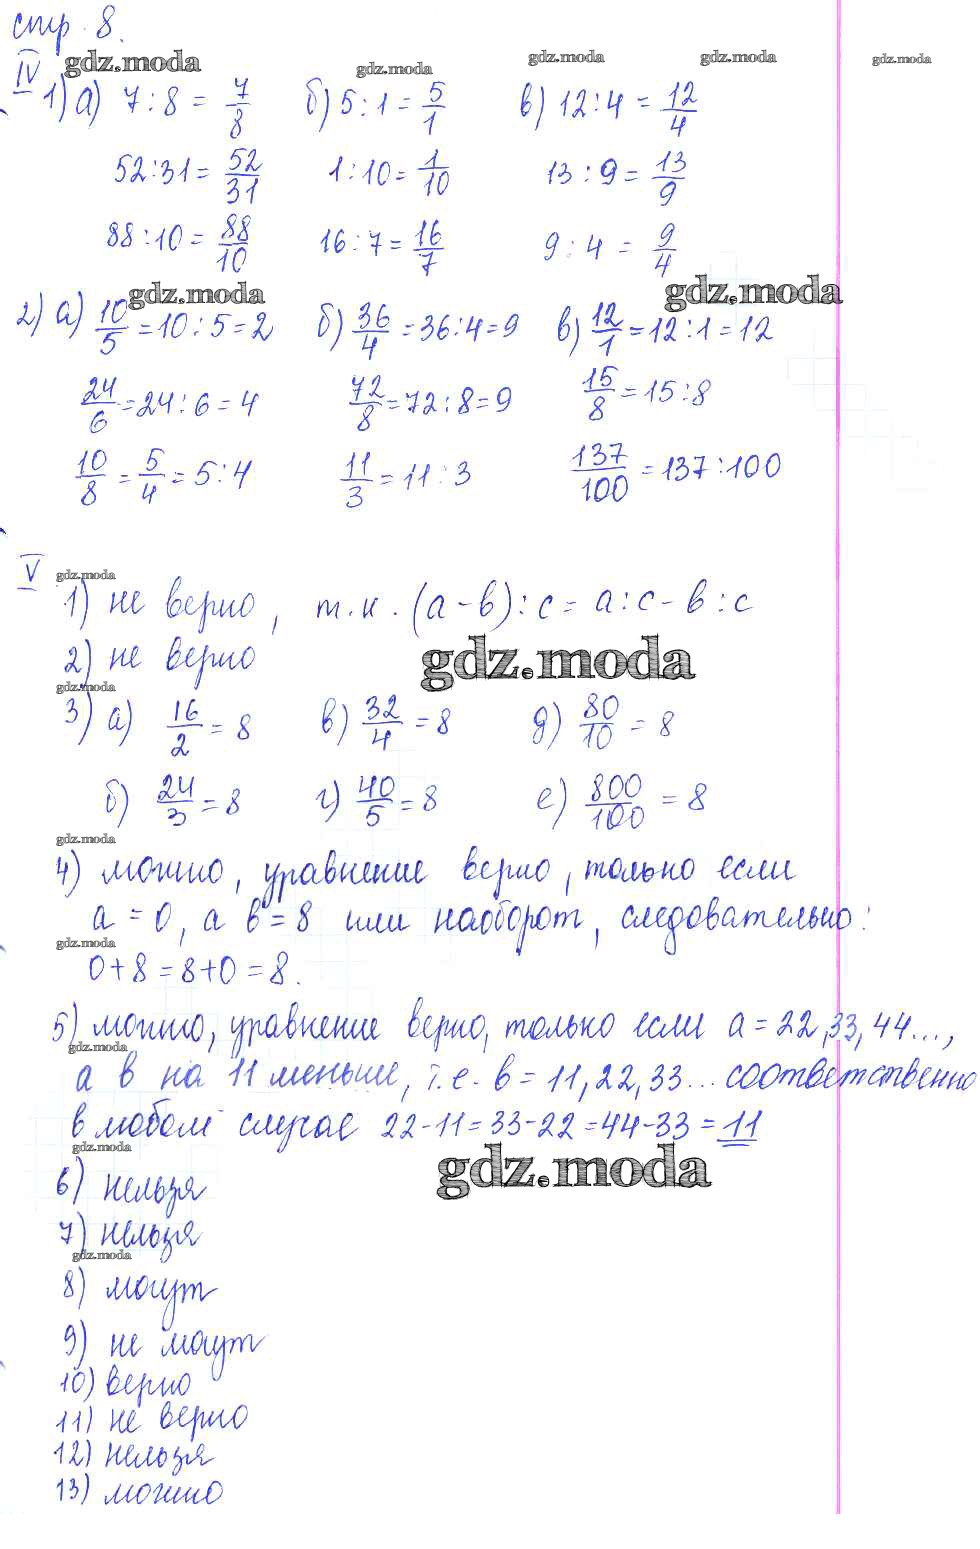 стр 8.
gdz.moda gdz.moda gdz.moda gdz.moda gdz.moda
IV
1) а) 7 : 8 = 7/8 б) 5 : 1 = 5/1 в) 12 : 4 = 12/4
52 : 31 = 52/31 1 : 10 = 1/10 13 : 9 = 13/9
88 : 10 = 88/10 16 : 7 = 16/7 9 : 4 = 9/4
gdz.moda gdz.moda
2) а) 10/5 = 10 : 5 = 2 б) 36/4 = 36 : 4 = 9 в) 12/1 = 12 : 1 = 12
24/6 = 24 : 6 = 4 72/8 = 72 : 8 = 9 15/8 = 15 : 8
10/8 = 5/4 = 5 : 4 11/3 = 11 : 3 137/100 = 137 : 100
V
gdz.moda
1) не верно, т.к. (а - в) : с = а : с - в : с
2) не верно gdz.moda
gdz.moda
3) а) 16/2 = 8 в) 32/4 = 8 д) 80/10 = 8
б) 24/3 = 8 г) 40/5 = 8 е) 800/100 = 8
gdz.moda
4) можно, уравнение верно, только если
а = 0, а в = 8 или наоборот, следовательно:
gdz.moda
0 + 8 = 8 + 0 = 8.
5) можно, уравнение верно, только если а = 22, 33, 44...,
gdz.moda
а в на 11 меньше, т.е. в = 11, 22, 33... соответственно
в любом случае 22 - 11 = 33 - 22 = 44 - 33 = 11
gdz.moda gdz.moda
6) нельзя
7) нельзя
gdz.moda
8) могут
9) не могут
10) верно
11) не верно
12) нельзя
13) можно